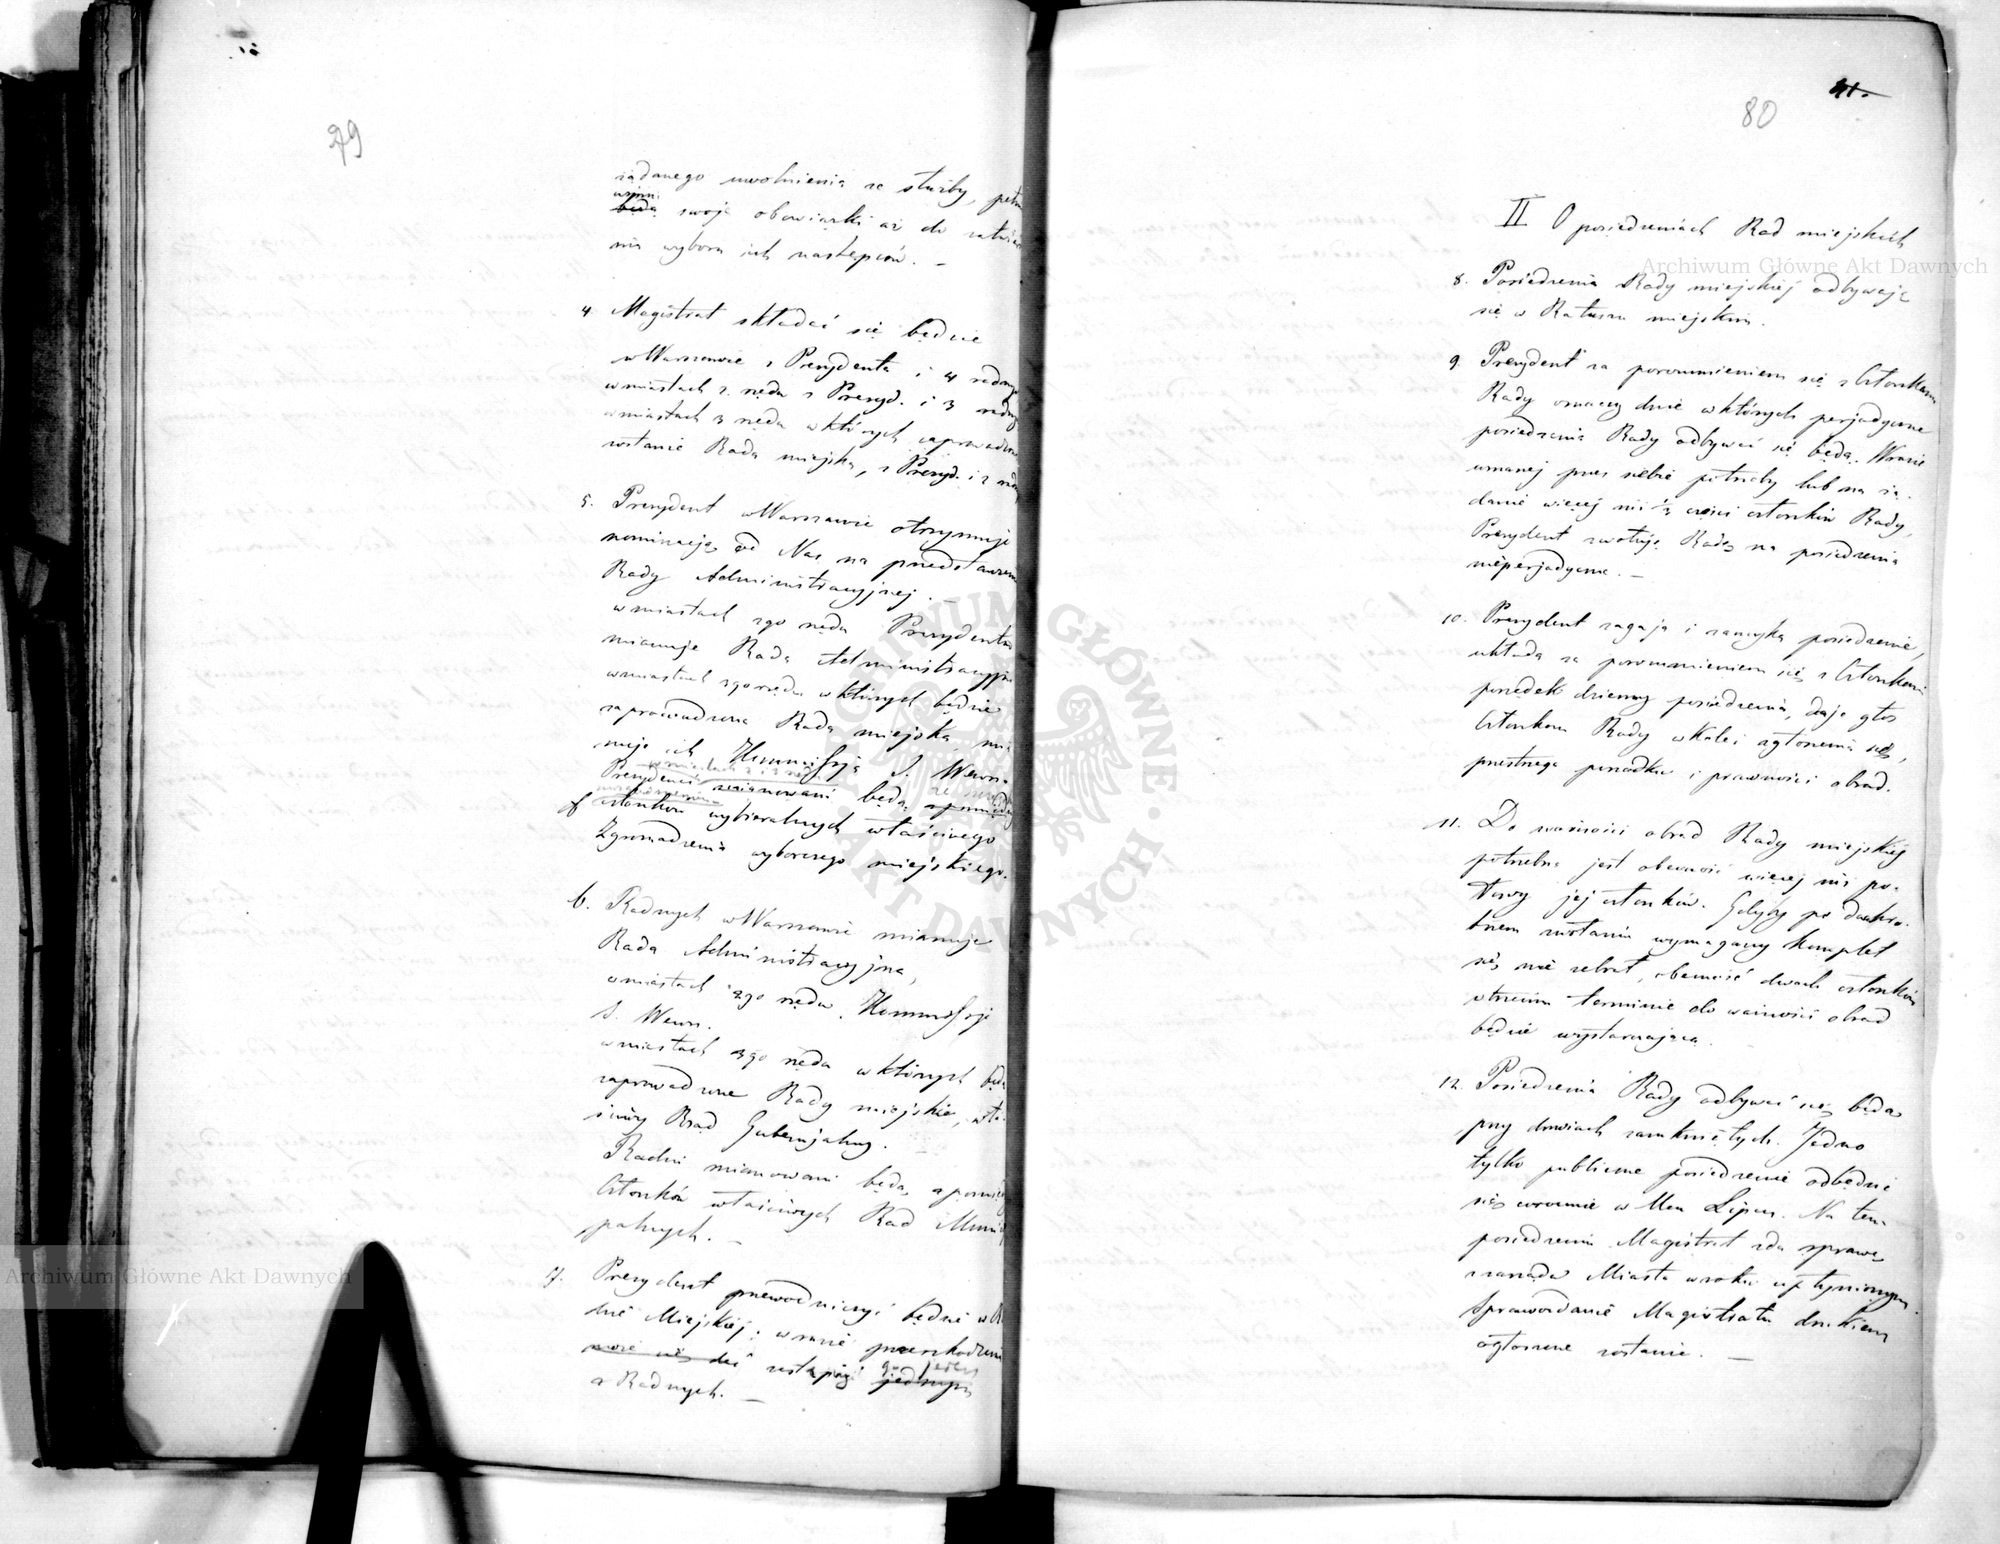 79
żądanego uwolnienia ze służby, pełn
winni
będą swoje obowiązki aż do
nia wyboru ich następców. —
4 Magistrat składać się będzie
w Warszawie z Prezydenta i 4 radnyc
w miastach 2 rzędu z Prezyd. i 3 radny
w miastach 3 rzędu w których zaprowadzon
zostanie Rada miejska, z Prezyd. i 2 rad
5. Prezydent w Warszawie otrzymuje
nominacją od Nas na przedstawieni
Rady Administracyjnej. —
w miastach 2go rzędu Prezydentów
mianuje Rada Administracyjn
w miastach 3go rzędu w których będzie
zaprowadzona Rada miejska, mia
nuje ich Kommissja S. Wewn.
w miastach 2 i 3 rzę
Prezydenci mianowani będą z pomiędzy
członków wybieralnych właściwego
Zgromadzenia wyborczego miejskiego.
6. Radnych w Warszawie mianuje
Rada Administracyjna,
w miastach 2go rzędu Kommissja
S. Wewn.
w miastach 3go rzędu w których będą
zaprowadzone Rady miejskie, wła-
ściwy Rząd Gubernjalny.
Radni mianowani będą z pomię
Członków właściwych Rad Muni
palnych. —
7. Prezydent przewodniczyć będzie w Ra
dzie Miejskiej; w razie przeszkodzenia
może się dać zastąpić go jeden
jednym
z Radnych. —
80
II O posiedzeniach Rad miejskich
8. Posiedzenia Rady miejskiej odbywają
się w Ratuszu miejskim.
9. Prezydent za porozumieniem się z Członkami
Rady oznaczy dnie w których perjodyczne
posiedzenia Rady odbywać się będą. W razie
uznanej przez siebie potrzeby lub na żą-
danie więcej niż 1/3 części członków Rady,
Prezydent zwołuje Radę na posiedzenia
nieperjodyczne. —
10. Prezydent zagaja i zamyka posiedzenie,
układa za porozumieniem się z Członkami
porządek dzienny posiedzenia, daje głos
Członkom Rady w kolei zgłoszenia się,
przestrzega porządku i prawności obrad.
11. Do ważności obrad Rady miejskiej
potrzebna jest obecność więcej niż po-
łowy jej członków. Gdyby po dwukro-
tnem zwołaniu wymagany komplet
się nie zebrał, obecność dwóch członków
w trzecim terminie do ważności obrad
będzie wystarczająca.
12. Posiedzenia Rady odbywać się będą
przy drzwiach zamkniętych. Jedno
tylko publiczne posiedzenie odbędzie
się corocznie w Mcu Lipcu. Na tem
posiedzeniu Magistrat zda sprawę
z zarządu Miasta w roku upłynionym.
Sprawozdanie Magistratu drukiem
ogłoszone zostanie. —
Archiwum Główne Akt Dawnych
Archiwum Główne Akt Dawnych
ARCHIWUM GŁÓWNE AKT DAWNYCH